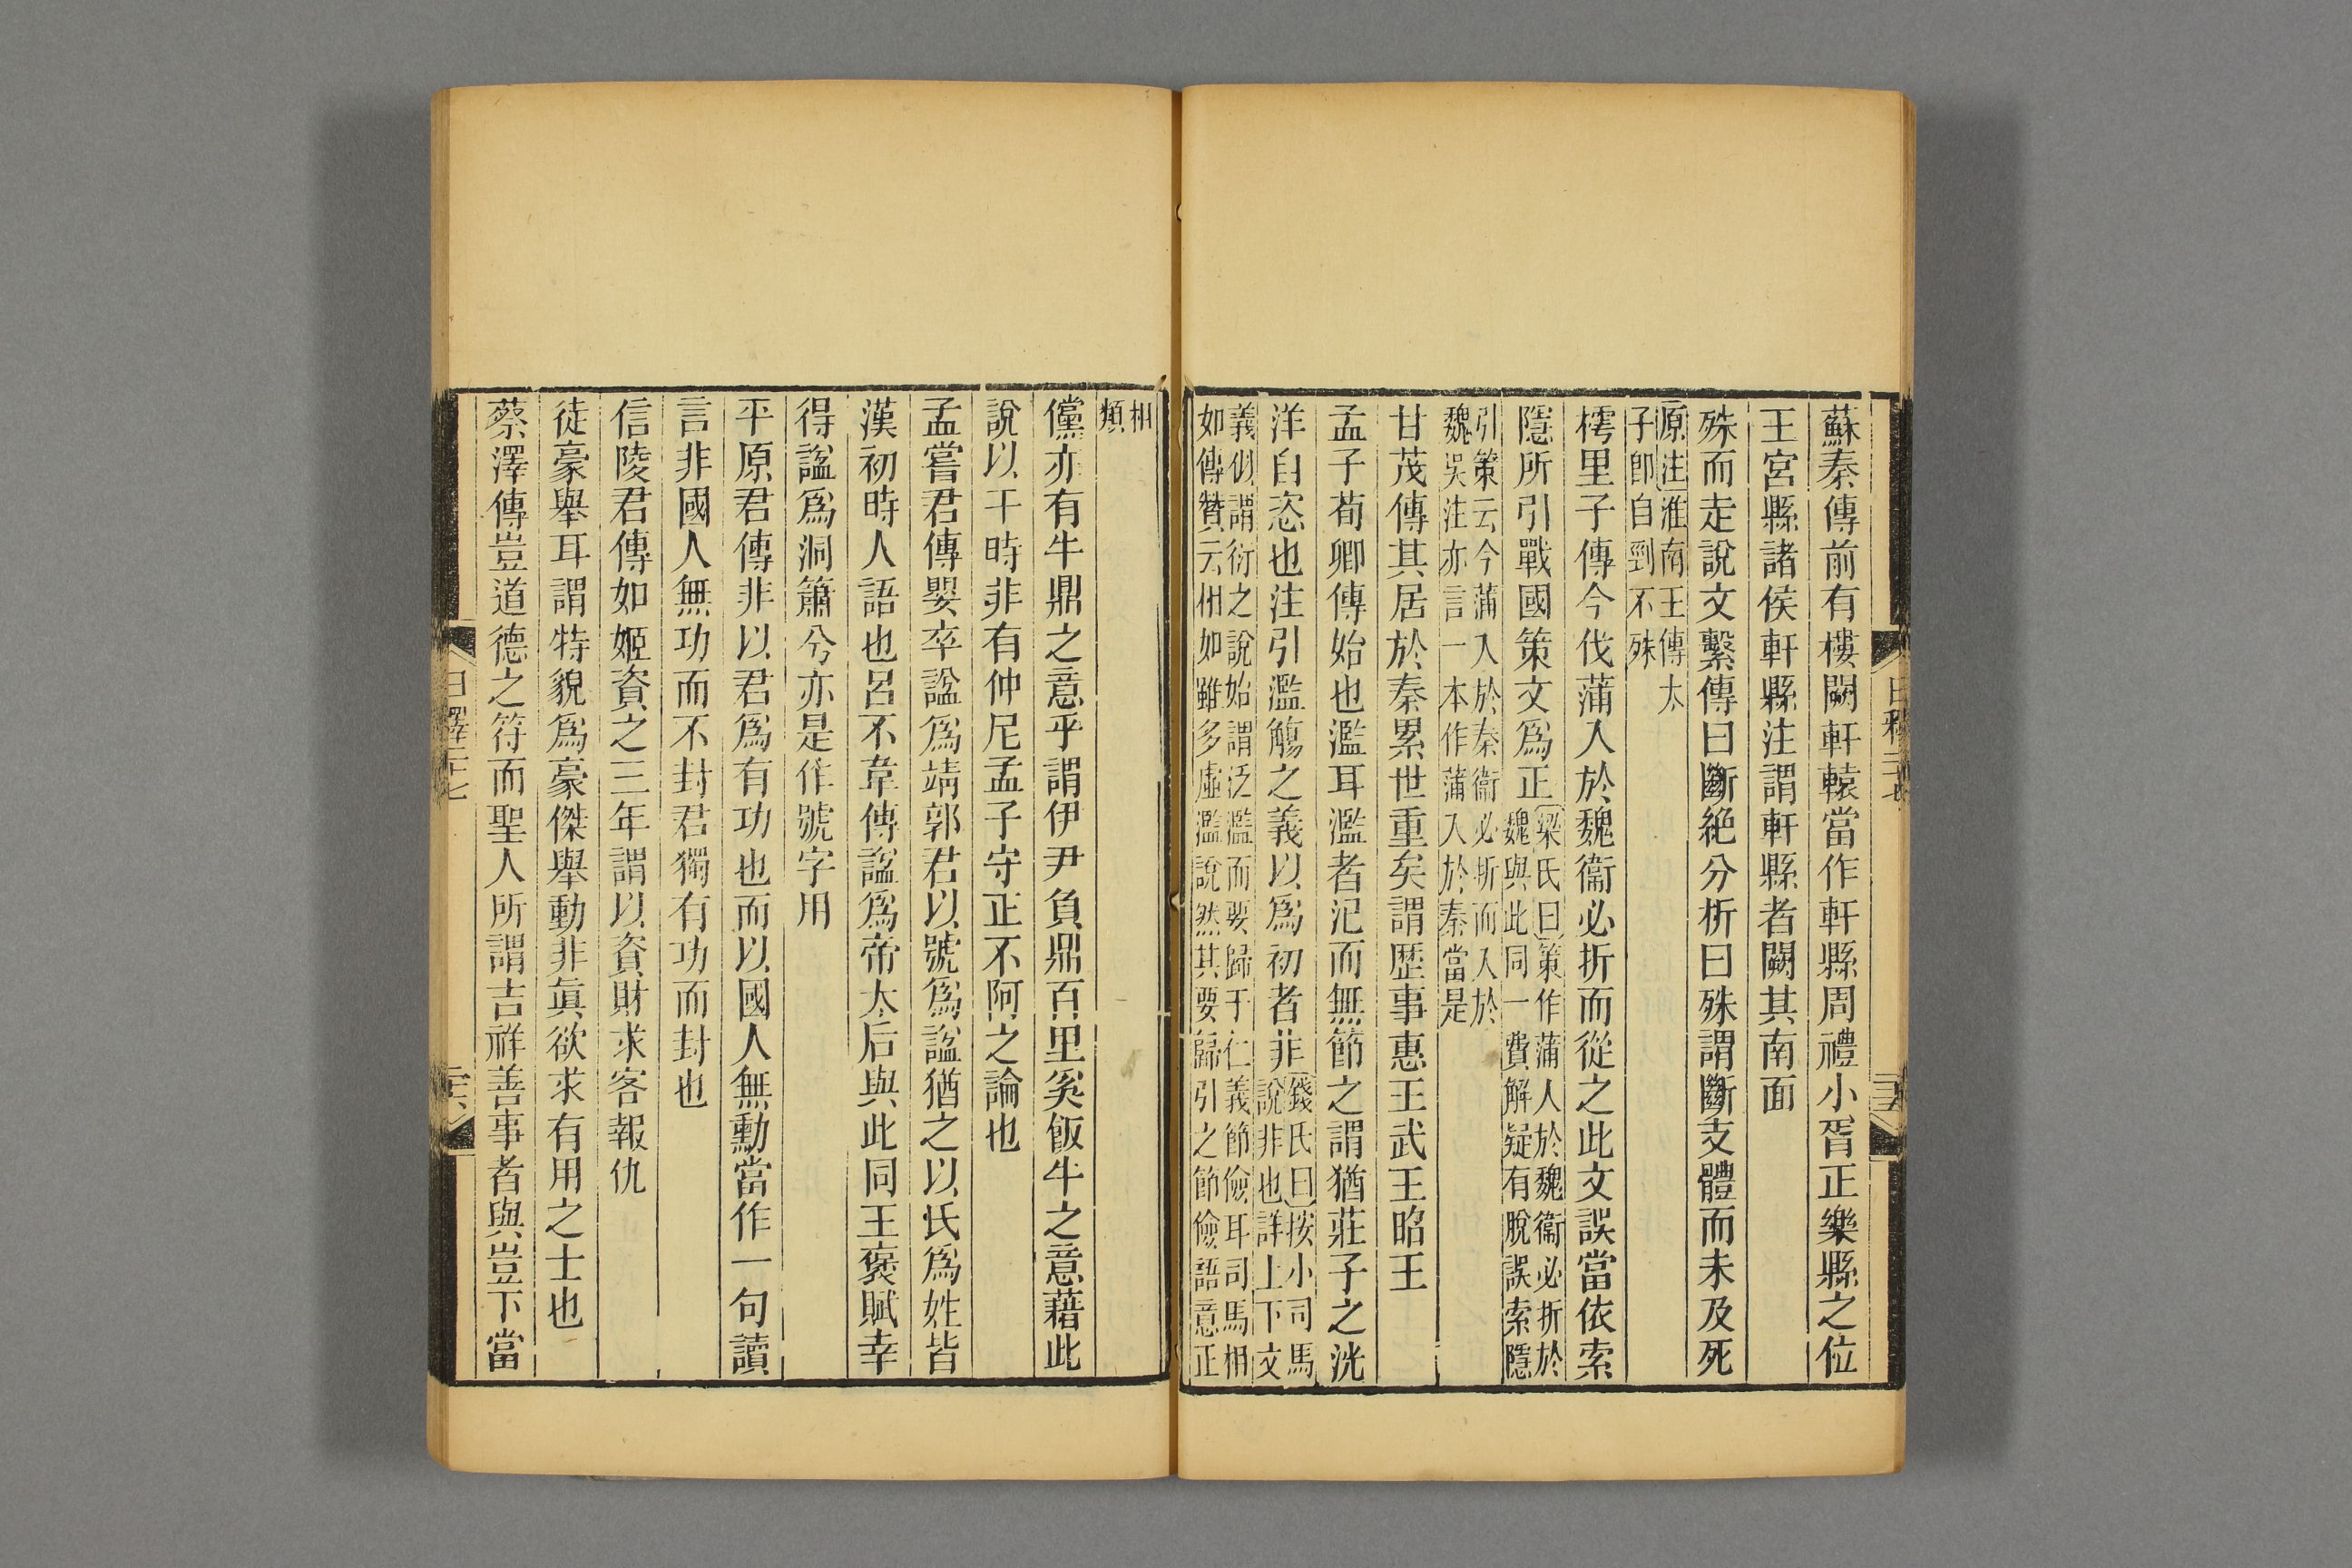 蘇秦傳前有樓闕軒轅當作軒縣周禮小胥正樂縣之位
王宮縣諸侯軒縣注謂軒縣者闕其南面
殊而走說文繫傳曰斷絶分析曰殊謂斷支體而未及死
原注淮南王傳太
子卽自剄不殊
樗里子傳今伐蒲入於魏衞必折而從之此文誤當依索
隱所引戰國策文爲正
梁氏曰策作蒲人於魏衞必折於
魏與此同一費解疑有脫誤索隱
引策云今蒲入於秦衞必折而入於
魏吳注亦言一本作蒲入於秦當是
甘茂傳其居於秦累世重矣謂歷事惠王武王昭王
孟子荀卿傳始也濫耳濫者氾而無節之謂猶莊子之洸
洋自恣也注引濫觴之義以爲初者非
錢氏曰按小司馬
說非也詳上下文
義似謂衍之說始謂泛濫而要歸于仁義節儉耳司馬相
如傳贊云相如雖多虛濫說然其要歸引之節儉語意正
相
類
儻亦有牛鼎之意乎謂伊尹負鼎百里奚飯牛之意藉此
說以干時非有仲尼孟子守正不阿之論也
孟嘗君傳嬰卒諡爲靖郭君以號爲諡猶之以氏爲姓皆
漢初時人語也呂不韋傳諡爲帝太后與此同王褒賦幸
得諡爲洞簫兮亦是作號字用
平原君傳非以君爲有功也而以國人無勳當作一句讀
言非國人無功而不封君獨有功而封也
信陵君傳如姬資之三年謂以資財求客報仇
徒豪舉耳謂特貌爲豪傑舉動非眞欲求有用之士也
蔡澤傳豈道德之符而聖人所謂吉祥善事者與豈下當